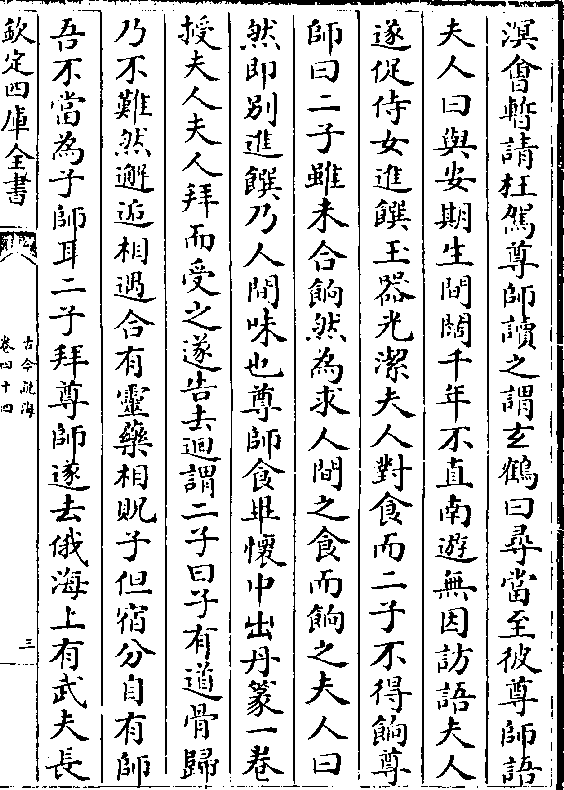 溟會暫請枉駕尊師讀之謂玄鶴曰尋當至彼尊師語
夫人曰與安期生間闊千年不直南遊無因訪語夫人
遂促侍女進饌玉器光潔夫人對食而二子不得餉尊
師曰二子雖未合餉然為求人間之食而餉之夫人曰
然即別進饌乃人間味也尊師食畢懷中出丹篆一卷
授夫人夫人拜而受之遂告去迴謂二子曰子有道骨歸
乃不難然邂逅相遇合有靈藥相貺子但宿分自有師
吾不當為子師耳二子拜尊師遂去俄海上有武夫長
欽定四庫全書
古今說海
卷四十四
三